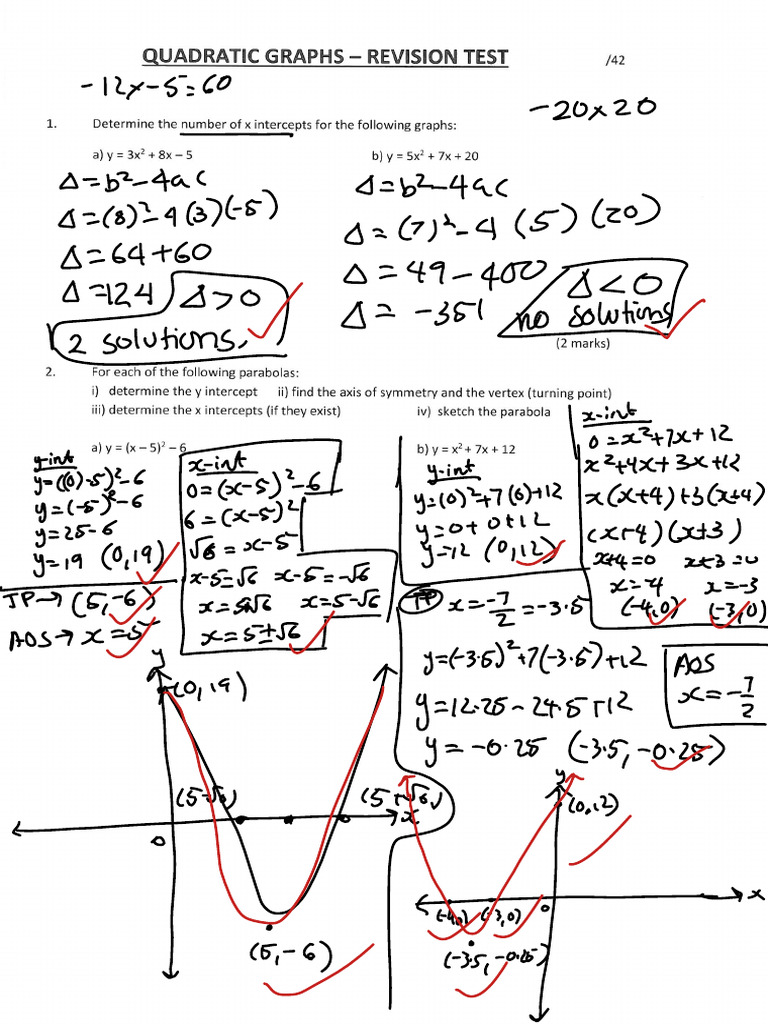 QUADRATIC GRAPHS – REVISION TEST
/42
-12x-5=60
-20x20
1. Determine the number of x intercepts for the following graphs:
a) y = 3x² + 8x – 5
Δ=b²-4ac
Δ=(8)²-4(3)(-5)
Δ=64+60
Δ=124 Δ>0
2 solutions.
b) y = 5x² + 7x + 20
Δ=b²-4ac
Δ=(7)²-4(5)(20)
Δ=49-400
Δ=-351
Δ<0
no solutions
(2 marks)
2. For each of the following parabolas:
i) determine the y intercept ii) find the axis of symmetry and the vertex (turning point)
iii) determine the x intercepts (if they exist) iv) sketch the parabola
a) y = (x – 5)² – 6
y-int
y=((0)-5)²-6
y=(-5)²-6
y=25-6
y=19 (0,19)
TP→(5,-6)
AOS→x=5
x-int
0=(x-5)²-6
6=(x-5)²
√6=x-5
x-5=√6 x-5=-√6
x=5+√6 x=5-√6
x=5±√6
y
(0,19)
(5-√6)
(5+√6)
x
0
(5,-6)
b) y = x² + 7x + 12
y-int
y=(0)²+7(0)+12
y=0+0+12
y=12 (0,12)
x-int
0=x²+7x+12
x²+4x+3x+12
x(x+4)+3(x+4)
(x+4)(x+3)
x+4=0 x+3=0
x=-4 x=-3
(-4,0) (-3,0)
TP x=-7/2=-3.5
y=(-3.5)²+7(-3.5)+12
y=12.25-24.5+12
y=-0.25 (-3.5,-0.25)
AOS
x=-7/2
y
(0,12)
x
(-4,0) (-3,0) 0
(-3.5,-0.25)